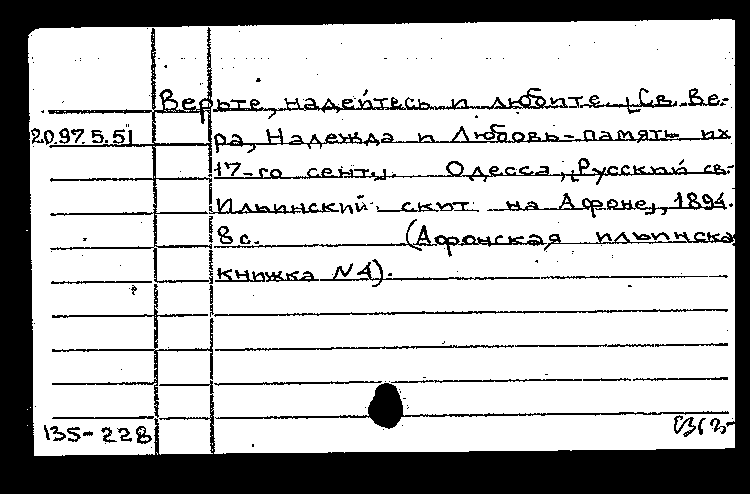 Верьте, надейтесь и любите. [Св. Ве-
20.97.5.51 ра, Надежда и Любовь-память их
17-го сент.]. Одесса, [Русский св.-
Ильинский скит на Афоне], 1894.
8 с. (Афонская ильинска
книжка №4).
135-228